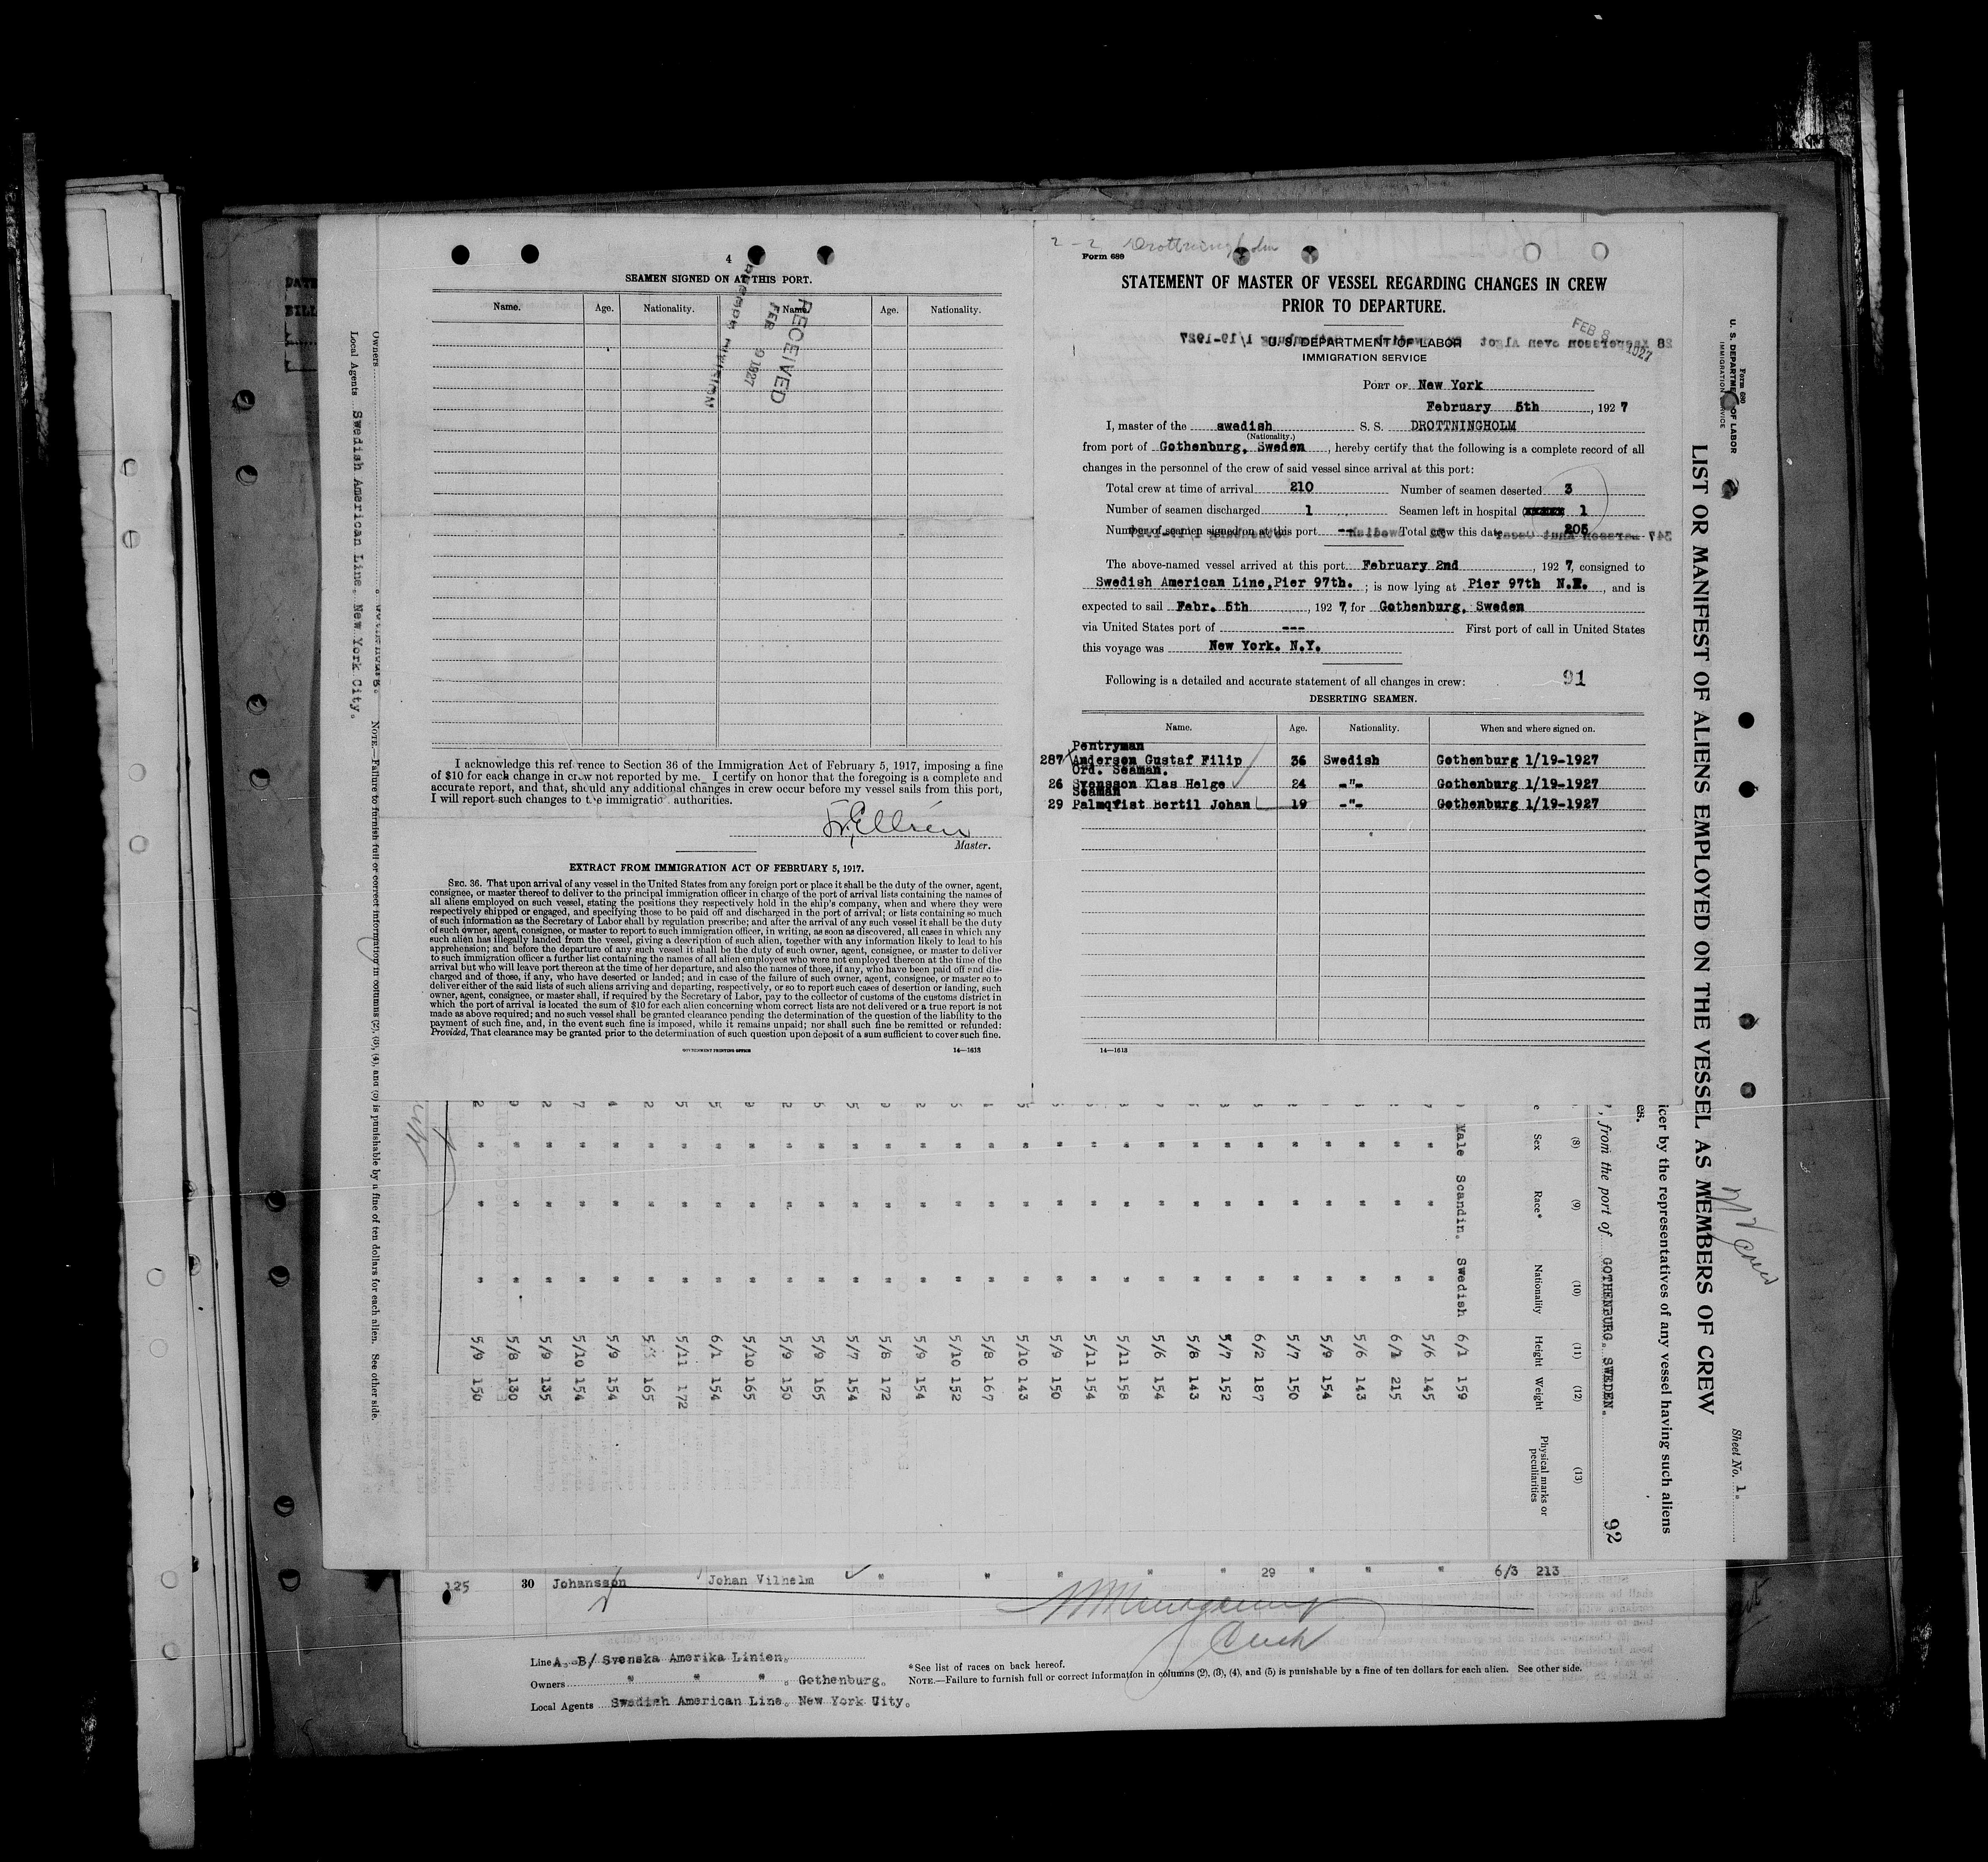 4
SEAMEN SIGNED ON AT THIS PORT.
Name. Age. Nationality. Name. Age. Nationality.
RECEIVED
FEB 9 1927
DIVISION
I acknowledge this reference to Section 36 of the Immigration Act of February 5, 1917, imposing a fine
of $10 for each change in crew not reported by me. I certify on honor that the foregoing is a complete and
accurate report, and that, should any additional changes in crew occur before my vessel sails from this port,
I will report such changes to the immigration authorities.
Master.
EXTRACT FROM IMMIGRATION ACT OF FEBRUARY 5, 1917.
SEC. 36. That upon arrival of any vessel in the United States from any foreign port or place it shall be the duty of the owner, agent,
consignee, or master thereof to deliver to the principal immigration officer in charge of the port of arrival lists containing the names of
all aliens employed on such vessel, stating the positions they respectively hold in the ship's company, when and where they were
respectively shipped or engaged, and specifying those to be paid off and discharged in the port of arrival; or lists containing so much
of such information as the Secretary of Labor shall by regulation prescribe; and after the arrival of any such vessel it shall be the duty
of such owner, agent, consignee, or master to report to such immigration officer, in writing, as soon as discovered, all cases in which any
such alien has illegally landed from the vessel, giving a description of such alien, together with any information likely to lead to his
apprehension; and before the departure of any such vessel it shall be the duty of such owner, agent, consignee, or master to deliver
to such immigration officer a further list containing the names of all alien employees who were not employed thereon at the time of the
arrival but who will leave port thereon at the time of her departure, and also the names of those, if any, who have been paid off and dis-
charged and of those, if any, who have deserted or landed; and in case of the failure of such owner, agent, consignee, or master so to
deliver either of the said lists of such aliens arriving and departing, respectively, or so to report such cases of desertion or landing, such
owner, agent, consignee, or master shall, if required by the Secretary of Labor, pay to the collector of customs of the customs district in
which the port of arrival is located the sum of $10 for each alien concerning whom correct lists are not delivered or a true report is not
made as above required; and no such vessel shall be granted clearance pending the determination of the question of the liability to the
payment of such fine, and, in the event such fine is imposed, while it remains unpaid; nor shall such fine be remitted or refunded:
Provided, That clearance may be granted prior to the determination of such question upon deposit of a sum sufficient to cover such fine.
GOVERNMENT PRINTING OFFICE 14—1613
2-2 Drottningholm
Form 689
STATEMENT OF MASTER OF VESSEL REGARDING CHANGES IN CREW
PRIOR TO DEPARTURE.
FEB 8 1927
U. S. DEPARTMENT OF LABOR
IMMIGRATION SERVICE
PORT OF New York
February 5th, 1927
I, master of the swedish S. S. DROTTNINGHOLM
(Nationality.)
from port of Gothenburg, Sweden, hereby certify that the following is a complete record of all
changes in the personnel of the crew of said vessel since arrival at this port:
Total crew at time of arrival 210 Number of seamen deserted 3
Number of seamen discharged 1 Seamen left in hospital 1
Number of seamen signed on at this port -- Total crew this date 205
The above-named vessel arrived at this port February 2nd, 1927, consigned to
Swedish American Line, Pier 97th.; is now lying at Pier 97th N.R., and is
expected to sail Febr. 5th, 1927, for Gothenburg, Sweden
via United States port of --- First port of call in United States
this voyage was New York. N.Y.
Following is a detailed and accurate statement of all changes in crew: 91
DESERTING SEAMEN.
Name. Age. Nationality. When and where signed on.
Pentryman
287 Anderson Gustaf Filip 36 Swedish Gothenburg 1/19-1927
Ord. Seaman.
26 Svensson Klas Helge 24 -"- Gothenburg 1/19-1927
Seaman
29 Palmqvist Bertil Johan 19 -"- Gothenburg 1/19-1927
14—1613
Form 680
U. S. DEPARTMENT OF LABOR
IMMIGRATION SERVICE
Sheet No. 1.
LIST OR MANIFEST OF ALIENS EMPLOYED ON THE VESSEL AS MEMBERS OF CREW
icer by the representatives of any vessel having such aliens
es.
, from the port of GOTHENBURG. SWEDEN. 92
(8) (9) (10) (11) (12) (13)
Sex Race* Nationality Height Weight Physical marks or peculiarities
Male Scandin. Swedish 6/1 159
" " " 5/6 145
" " " 6/1 215
" " " 5/6 143
" " " 5/9 154
" " " 5/7 150
" " " 6/2 187
" " " 5/7 152
" " " 5/8 143
" " " 5/6 154
" " " 5/11 158
" " " 5/11 154
" " " 5/9 150
" " " 5/10 143
" " " 5/8 167
" " " 5/10 152
" " " 5/9 154
" " " 5/8 172
" " " 5/7 154
" " " 5/9 165
" " " 5/9 150
" " " 5/10 165
" " " 6/1 154
" " " 5/11 172
" " " 165
" " " 5/9 154
" " " 5/10 154
" " " 5/9 135
" " " 5/8 130
" " " 5/9 150
NOTE.—Failure to furnish full or correct information in columns (2), (3), (4), and (5) is punishable by a fine of ten dollars for each alien. See other side.
Owners
Local Agents Swedish American Line. New York City.
125 30 Johansson Johan Vilhelm " " " " 29 " " " 6/3 213
Line A.-B/ Svenska Amerika Linien.
Owners " " ". Gothenburg.
Local Agents Swedish American Line. New York City.
*See list of races on back hereof.
NOTE.—Failure to furnish full or correct information in columns (2), (3), (4), and (5) is punishable by a fine of ten dollars for each alien. See other side.